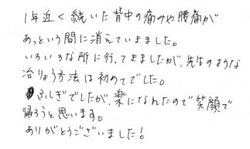 1年近く続いた背中の痛みや腰痛が
あっという間に消えていきました。
いろいろな所に行ってきましたが、先生のような
治りょう方法は初めてでした。
ふしぎでしたが、楽になれたので笑顔で
帰ろうと思います。
ありがとうございました！